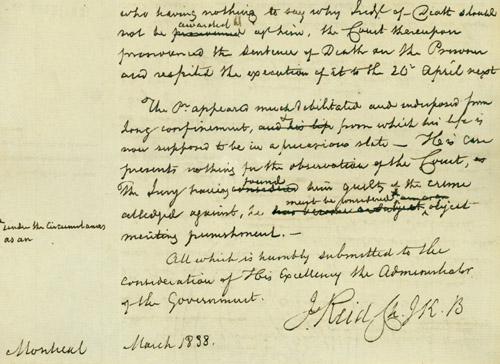 who having nothing to say why Judgt of Death should
not be pronounced awarded agt him, the Court thereupon
pronounced the Sentence of Death on the Prisoner
and respited the execution of it to the 20th April next
The Pr. appeared much debilitated and indisposed from
long confinement, and his life from which his life is
now supposed to be in a precarious state — His case
presents nothing for the observation of the Court, as
The Jury having considered found him guilty of the crime
alledged against, he has become a subject must be considered object
under the circumstances
as an
meriting punishment. —
All which is humbly submitted to the
Consideration of His Excellency the Administrator
of the Government.
J. Reid Ch. J. K. B
Montreal March 1838.